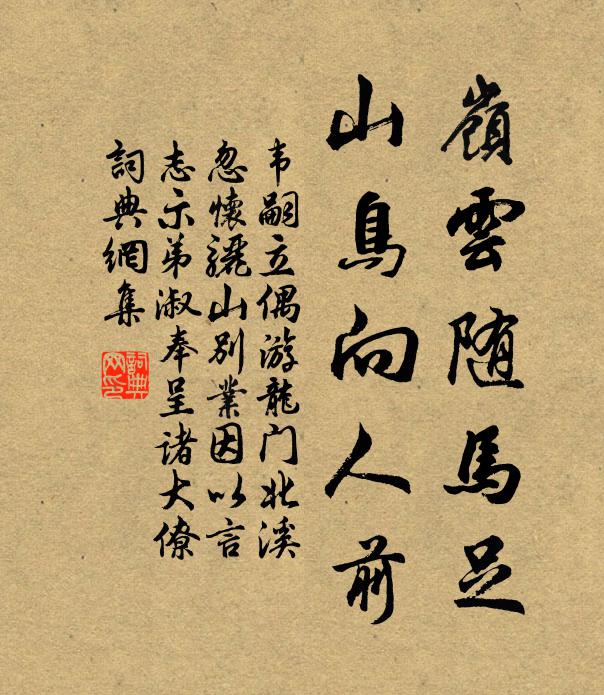 嶺雲随馬足
山鳥向人前
韦嗣立偶游龍门北溪
忽懷驪山別業因以言
志示弟淑奉呈诸大僚
詞典網集
詞典网印